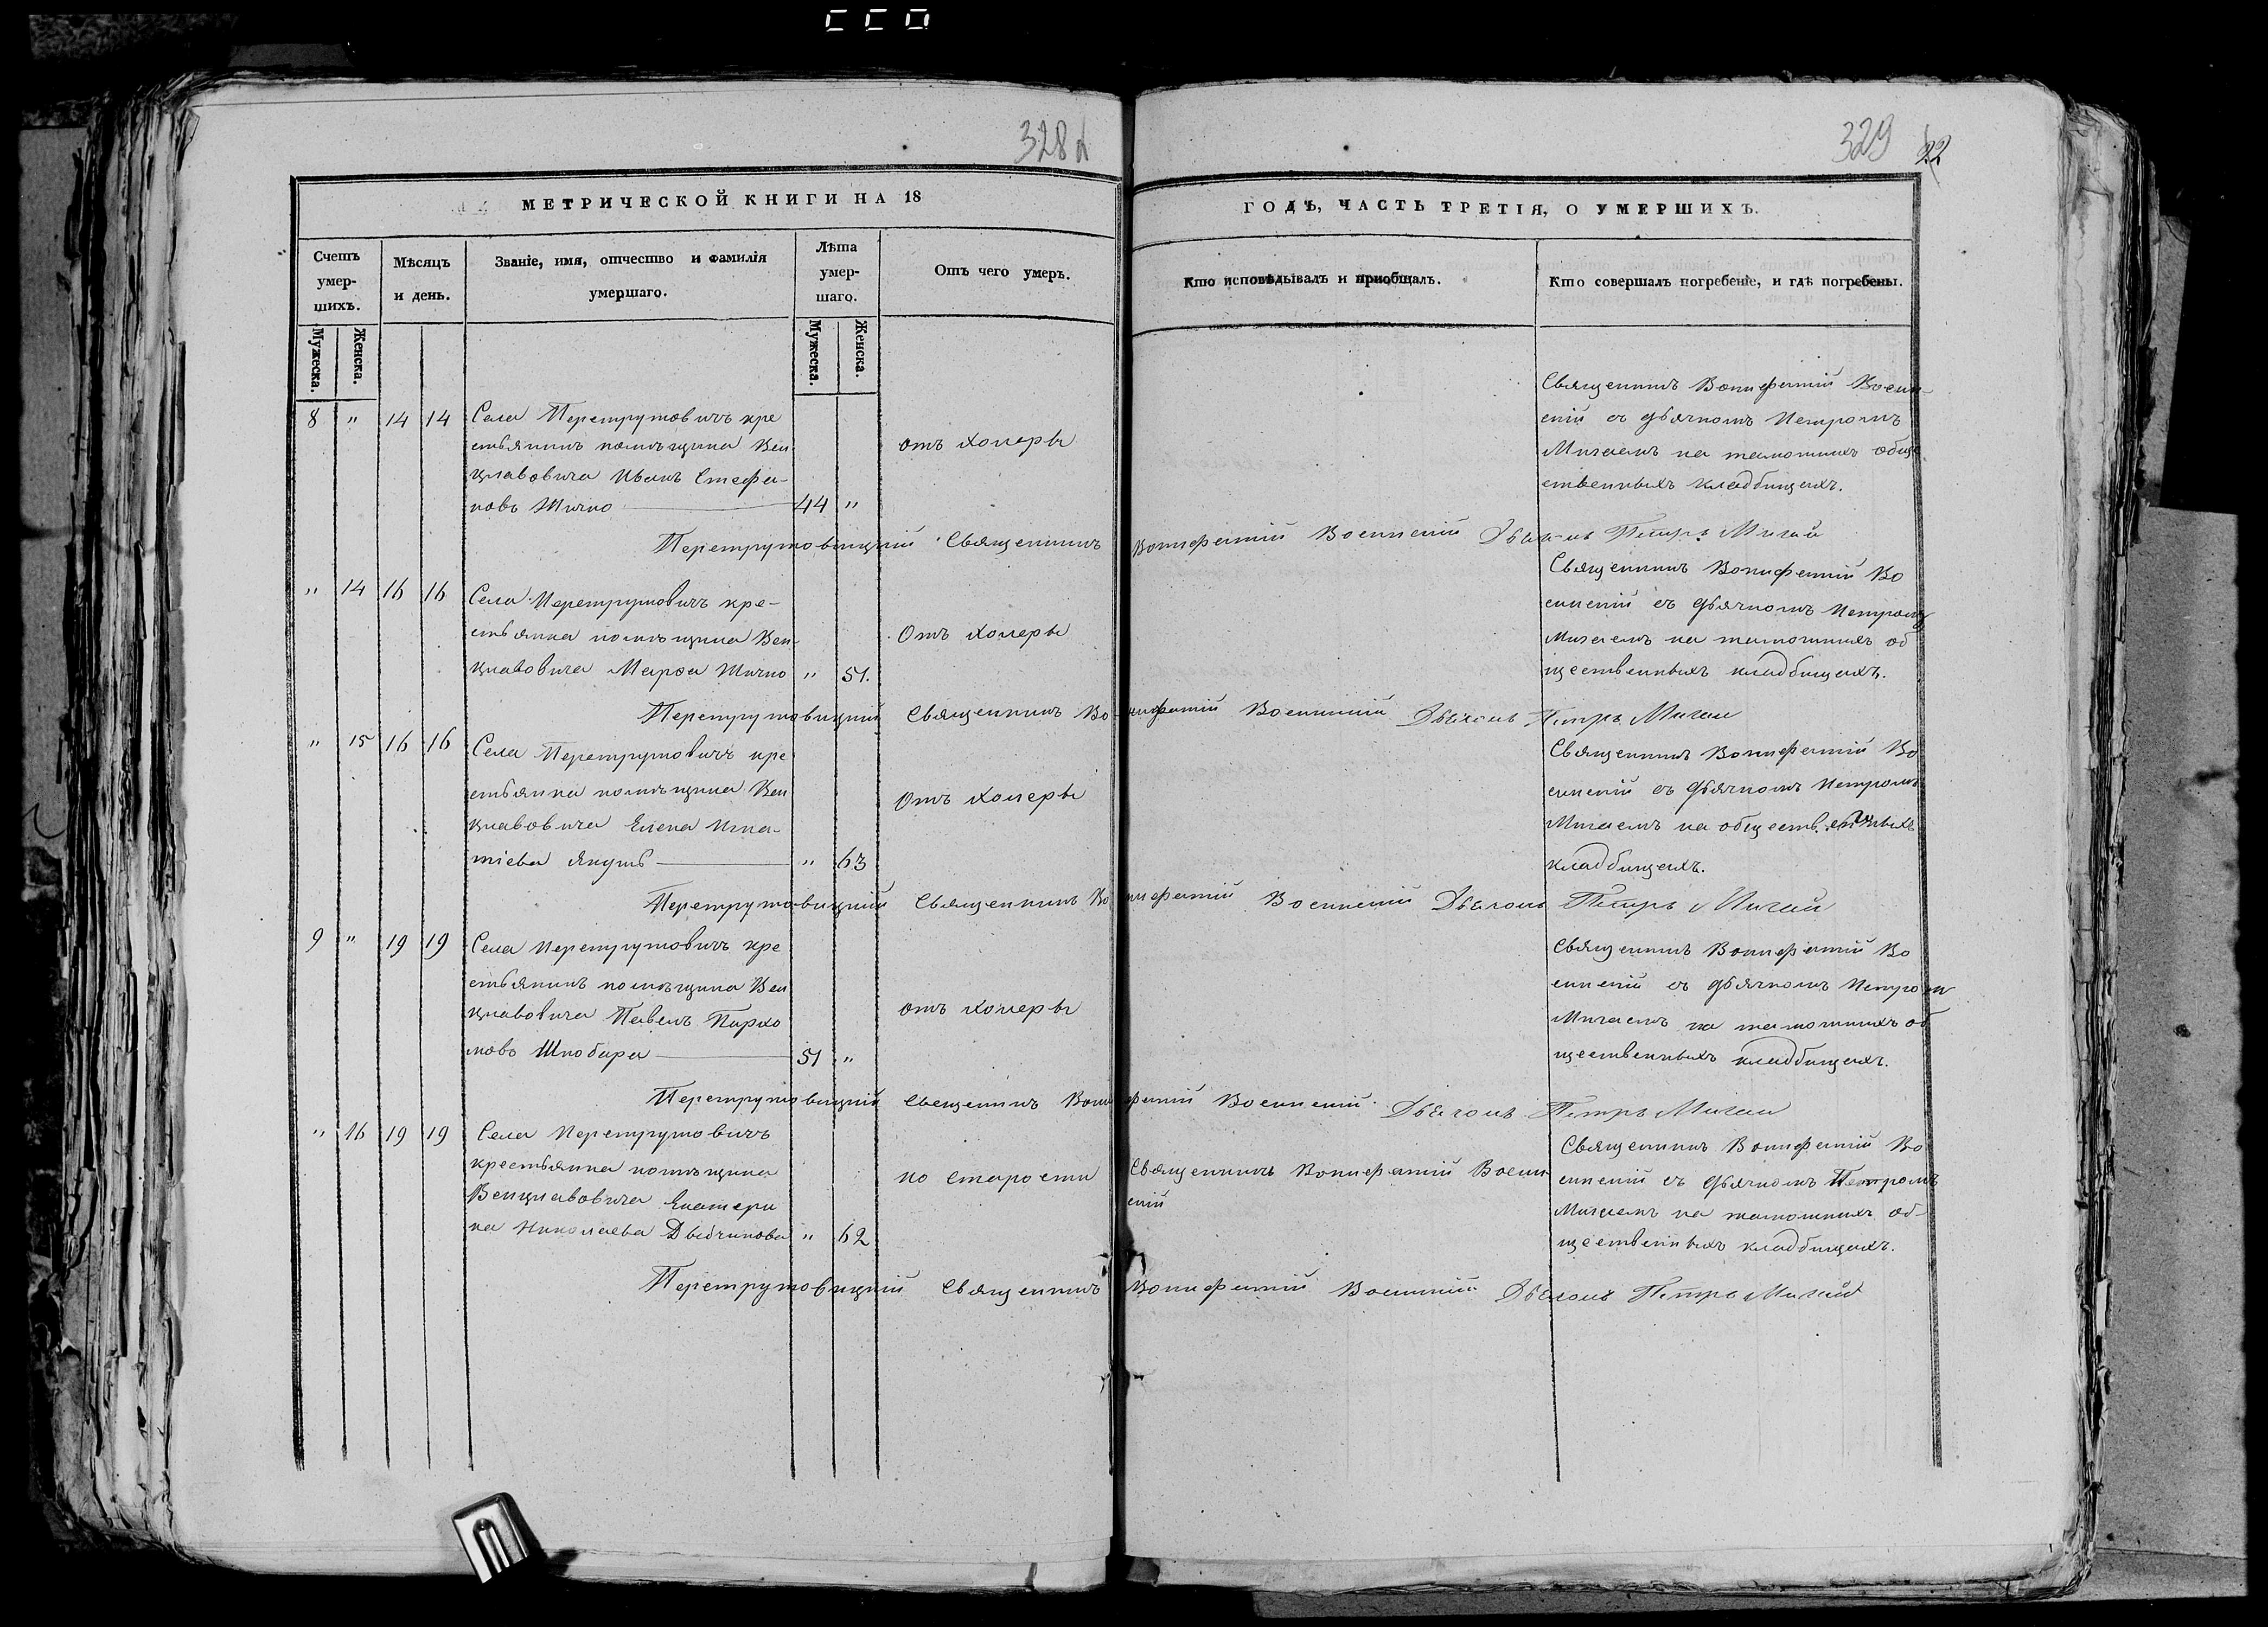 328 д
329 22
МЕТРИЧЕСКОЙ КНИГИ НА 18
ГОДЪ, ЧАСТЬ ТРЕТІЯ, О УМЕРШИХЪ.
Счетъ умер-шихъ.
Мѣсяцъ и день.
Званіе, имя, отчество и фамилія умершаго.
Лѣта умер-шаго.
Отъ чего умеръ.
Кто исповѣдывалъ и приобщалъ.
Кто совершалъ погребеніе, и гдѣ погребены.
Мужеска. Женска. Мужеска. Женска.
8 " 14 14
Села Перетрутовичъ кре
стьянинъ помѣщика Вен
цлавовича Иванъ Стефа-
новъ Жичко 44 "
отъ холеры
Священникъ Вонифатій Воени-
скій съ дьячкомъ Петромъ
Мигаемъ на тамошнихъ обще
ственныхъ кладбищахъ.
Перетрутовицкій Священникъ Вонифатій Воениский Дьячокъ Петръ Мигай
" 14 16 16
Села Перетрутовичъ кре-
стьянка помѣщика Вен-
цлавовича Марѳа Жичко " 51.
Отъ холеры
Священникъ Вонифатій Во
енискій съ дьячкомъ Петромъ
Мигаемъ на тамошнихъ об
щественныхъ кладбищахъ.
Перетрутовицкій Священникъ Вонифатій Воениский Дьячокъ Петръ Мигай
" 15 16 16
Села Перетрутовичъ кре
стьянка помѣщика Вен
цлавовича Елена Игна-
тіева Якушъ " 63
Отъ холеры
Священникъ Вонифатій Во
енискій съ дьячкомъ Петромъ
Мигаемъ на общественныхъ
кладбищахъ.
Перетрутовицкій Священникъ Вонифатій Воениский Дьячокъ Петръ Мигай
9 " 19 19
Села Перетрутовичъ кре
стьянинъ помѣщика Вен
цлавовича Павелъ Пархо
мовъ Шкобара 51 "
отъ холеры
Священникъ Вонифатій Во
енискій съ дьячкомъ Петромъ
Мигаемъ на тамошнихъ об
щественныхъ кладбищахъ.
Перетрутовицкій Свещеникъ Вонифатій Воениский Дьячокъ Петръ Мигай
" 16 19 19
Села Перетрутовичъ
крестьянка помѣщика
Венцлавовича Екатери
на Николаева " 62
по старости
Священникъ Вонифатій Воени
скій
Священникъ Вонифатій Во
енискій съ дьячкомъ Петромъ
Мигаемъ на тамошнихъ об-
щественныхъ кладбищахъ.
Перетрутовицкій Священникъ Вонифатій Воениский Дьячокъ Петръ Мигай